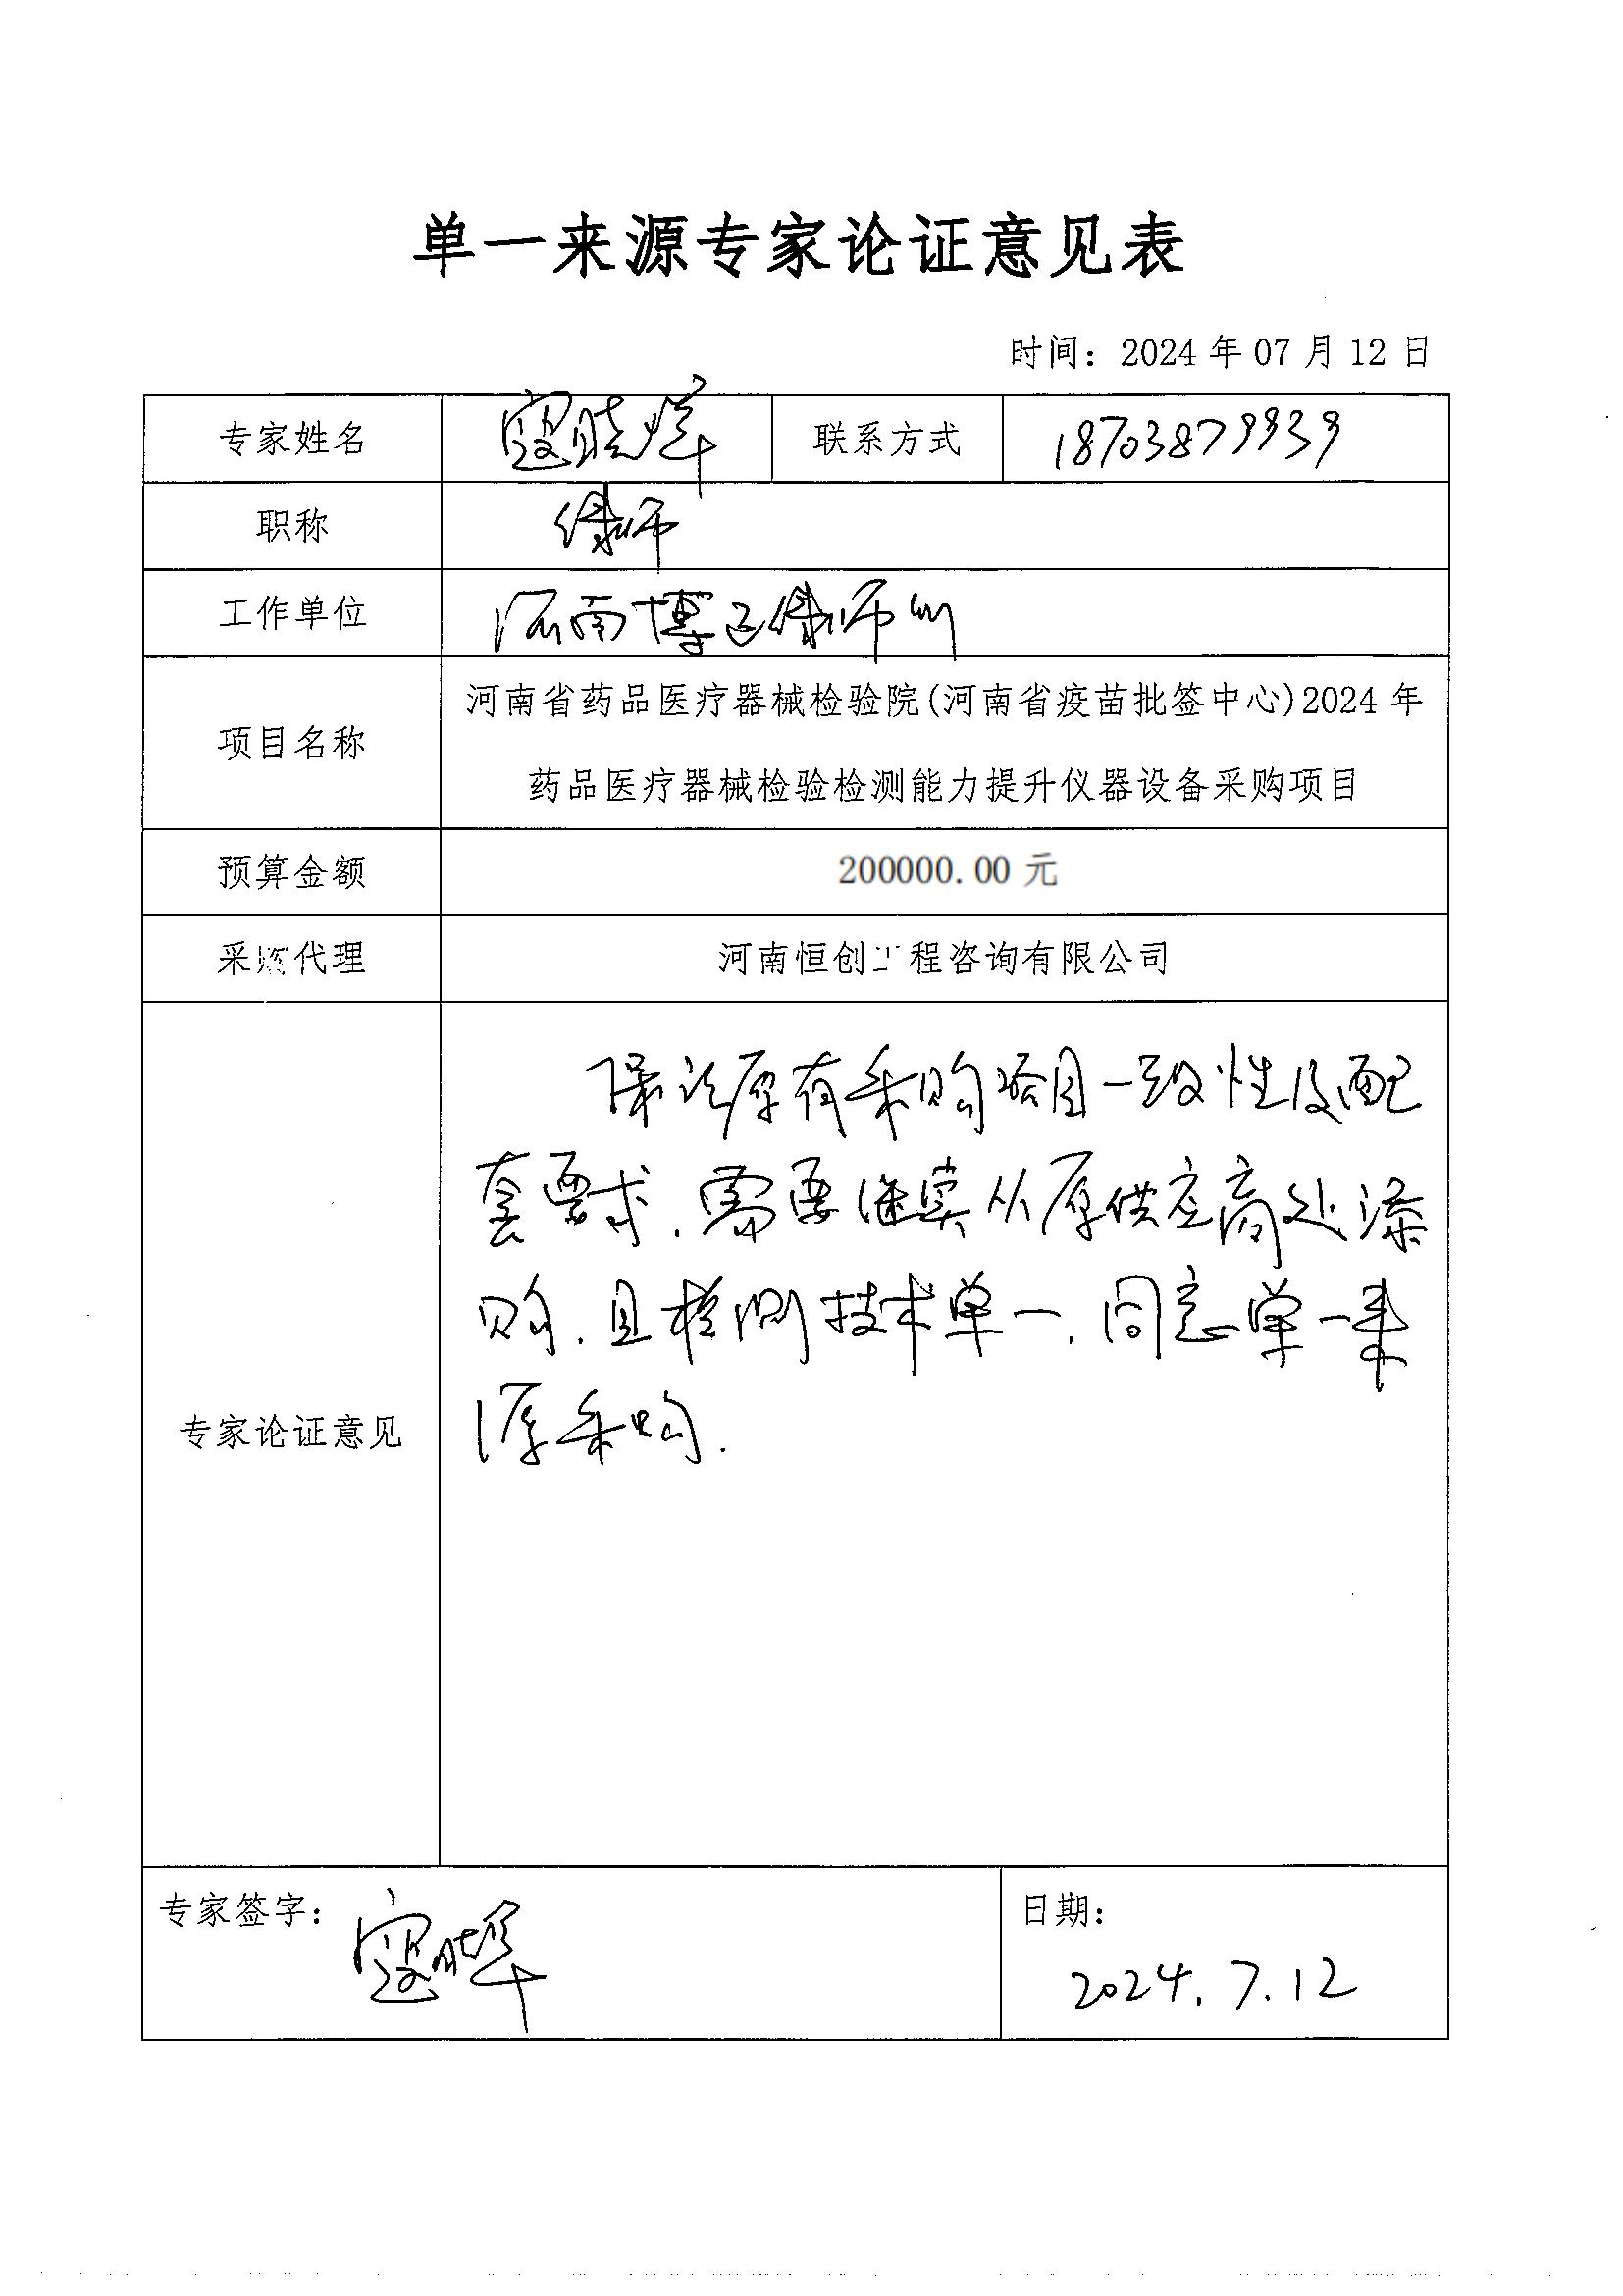 单一来源专家论证意见表
时间：2024 年 07 月 12 日
专家姓名 寇晓 联系方式 18703879939
职称 律师
工作单位 河南博正律师所
项目名称 河南省药品医疗器械检验院(河南省疫苗批签中心)2024 年
药品医疗器械检验检测能力提升仪器设备采购项目
预算金额 200000.00 元
采购代理 河南恒创工程咨询有限公司
专家论证意见
保证原有采购项目一致性及配
套要求.需要继续从原供应商处添
购.且检测技术单一.同意单一来
源采购.
专家签字： 寇晓 日期：
2024.7.12